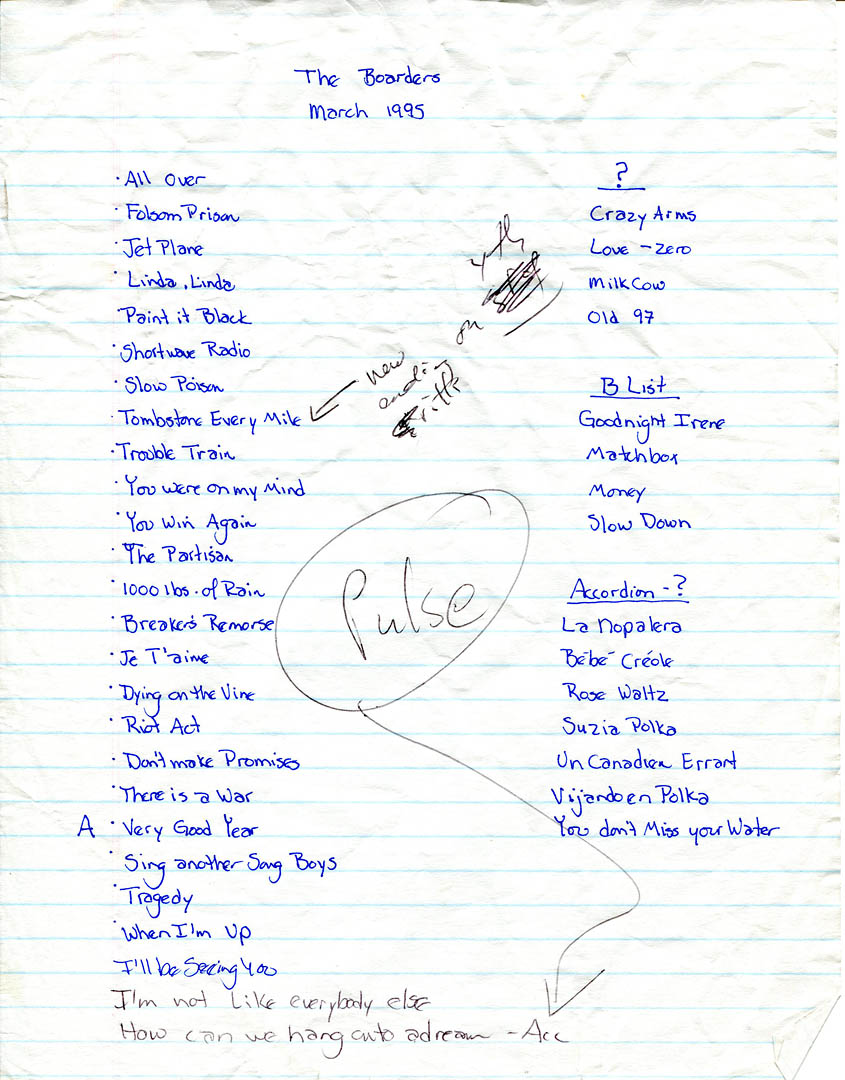 The Boarders
March 1995
· All Over
· Folsom Prison
· Jet Plane
· Linda, Linda
· Paint it Black
· Shortwave Radio
· Slow Poison
· Tombstone Every Mile
· Trouble Train
· You were on my Mind
· You Win Again
· The Partisan
· 1000 lbs. of Rain
· Breaker's Remorse
· Je T'aime
· Dying on the Vine
· Riot Act
· Don't make Promises
· There is a War
A · Very Good Year
· Sing another Song Boys
· Tragedy
· When I'm Up
· I'll be Seeing You
I'm not Like everybody else
How can we hang onto a dream - Acc
new
on
Pulse
?
Crazy Arms
Love - Zero
Milk Cow
Old 97
B List
Goodnight Irene
Matchbox
Money
Slow Down
Accordion - ?
La Nopalera
Bébé Créole
Rose Waltz
Suzia Polka
Un Canadien Errant
Vijando en Polka
You don't Miss your Water